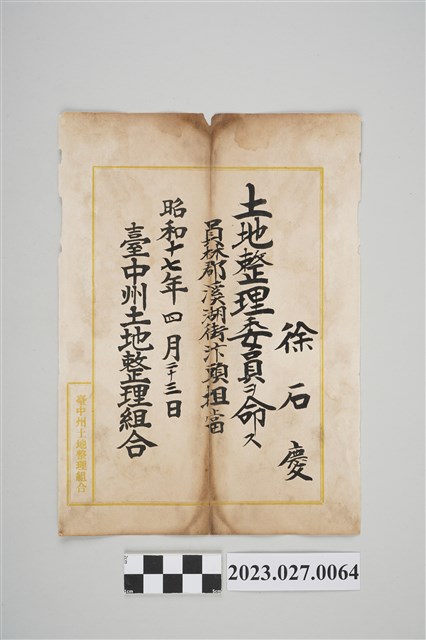 徐石慶
土地整理委員ヲ命ス
員林郡溪湖街汴頭担當
昭和十七年四月二十三日
臺中州土地整理組合
臺中州土地整理組合
2023.027.0064